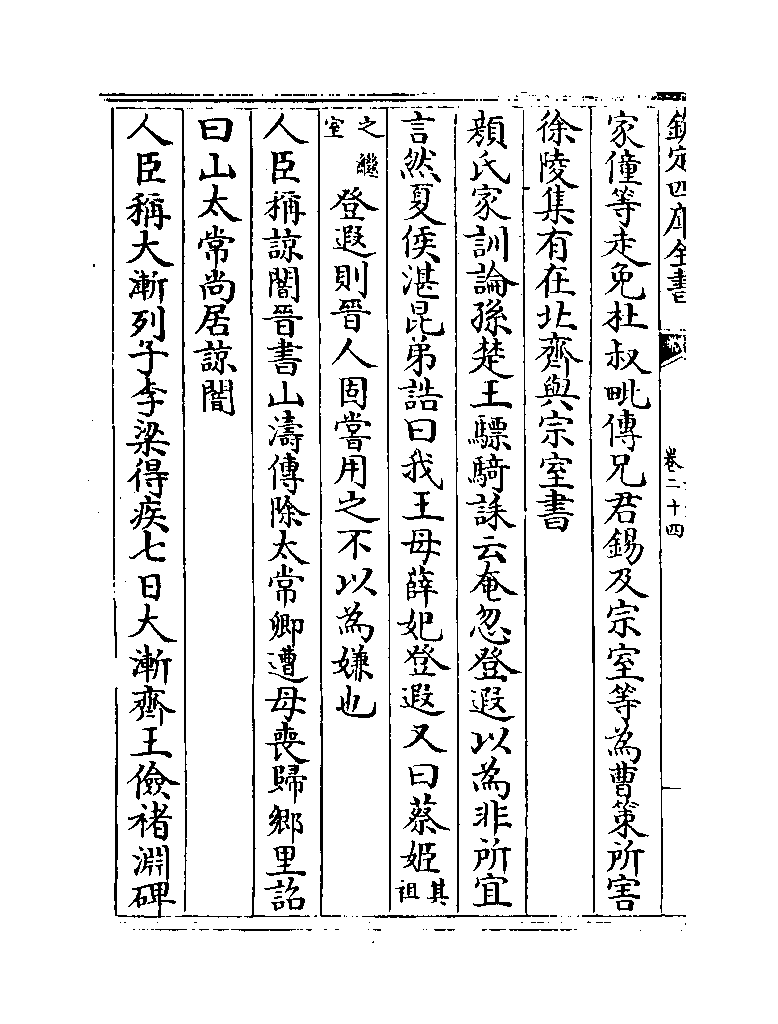 欽定四庫全書
卷二十四
家僮等走免杜叔毗傳兄君錫及宗室等為曹策所害
徐陵集有在北齊與宗室書
顔氏家訓論孫楚王驃騎誄云奄忽登遐以為非所宜
言然夏侯湛昆弟誥曰我王母薛妃登遐又曰蔡姬其祖
之繼室登遐則晉人固嘗用之不以為嫌也
人臣稱諒闇晉書山濤傳除太常卿遭母喪歸鄉里詔
曰山太常尚居諒闇
人臣稱大漸列子季梁得疾七日大漸齊王儉褚淵碑